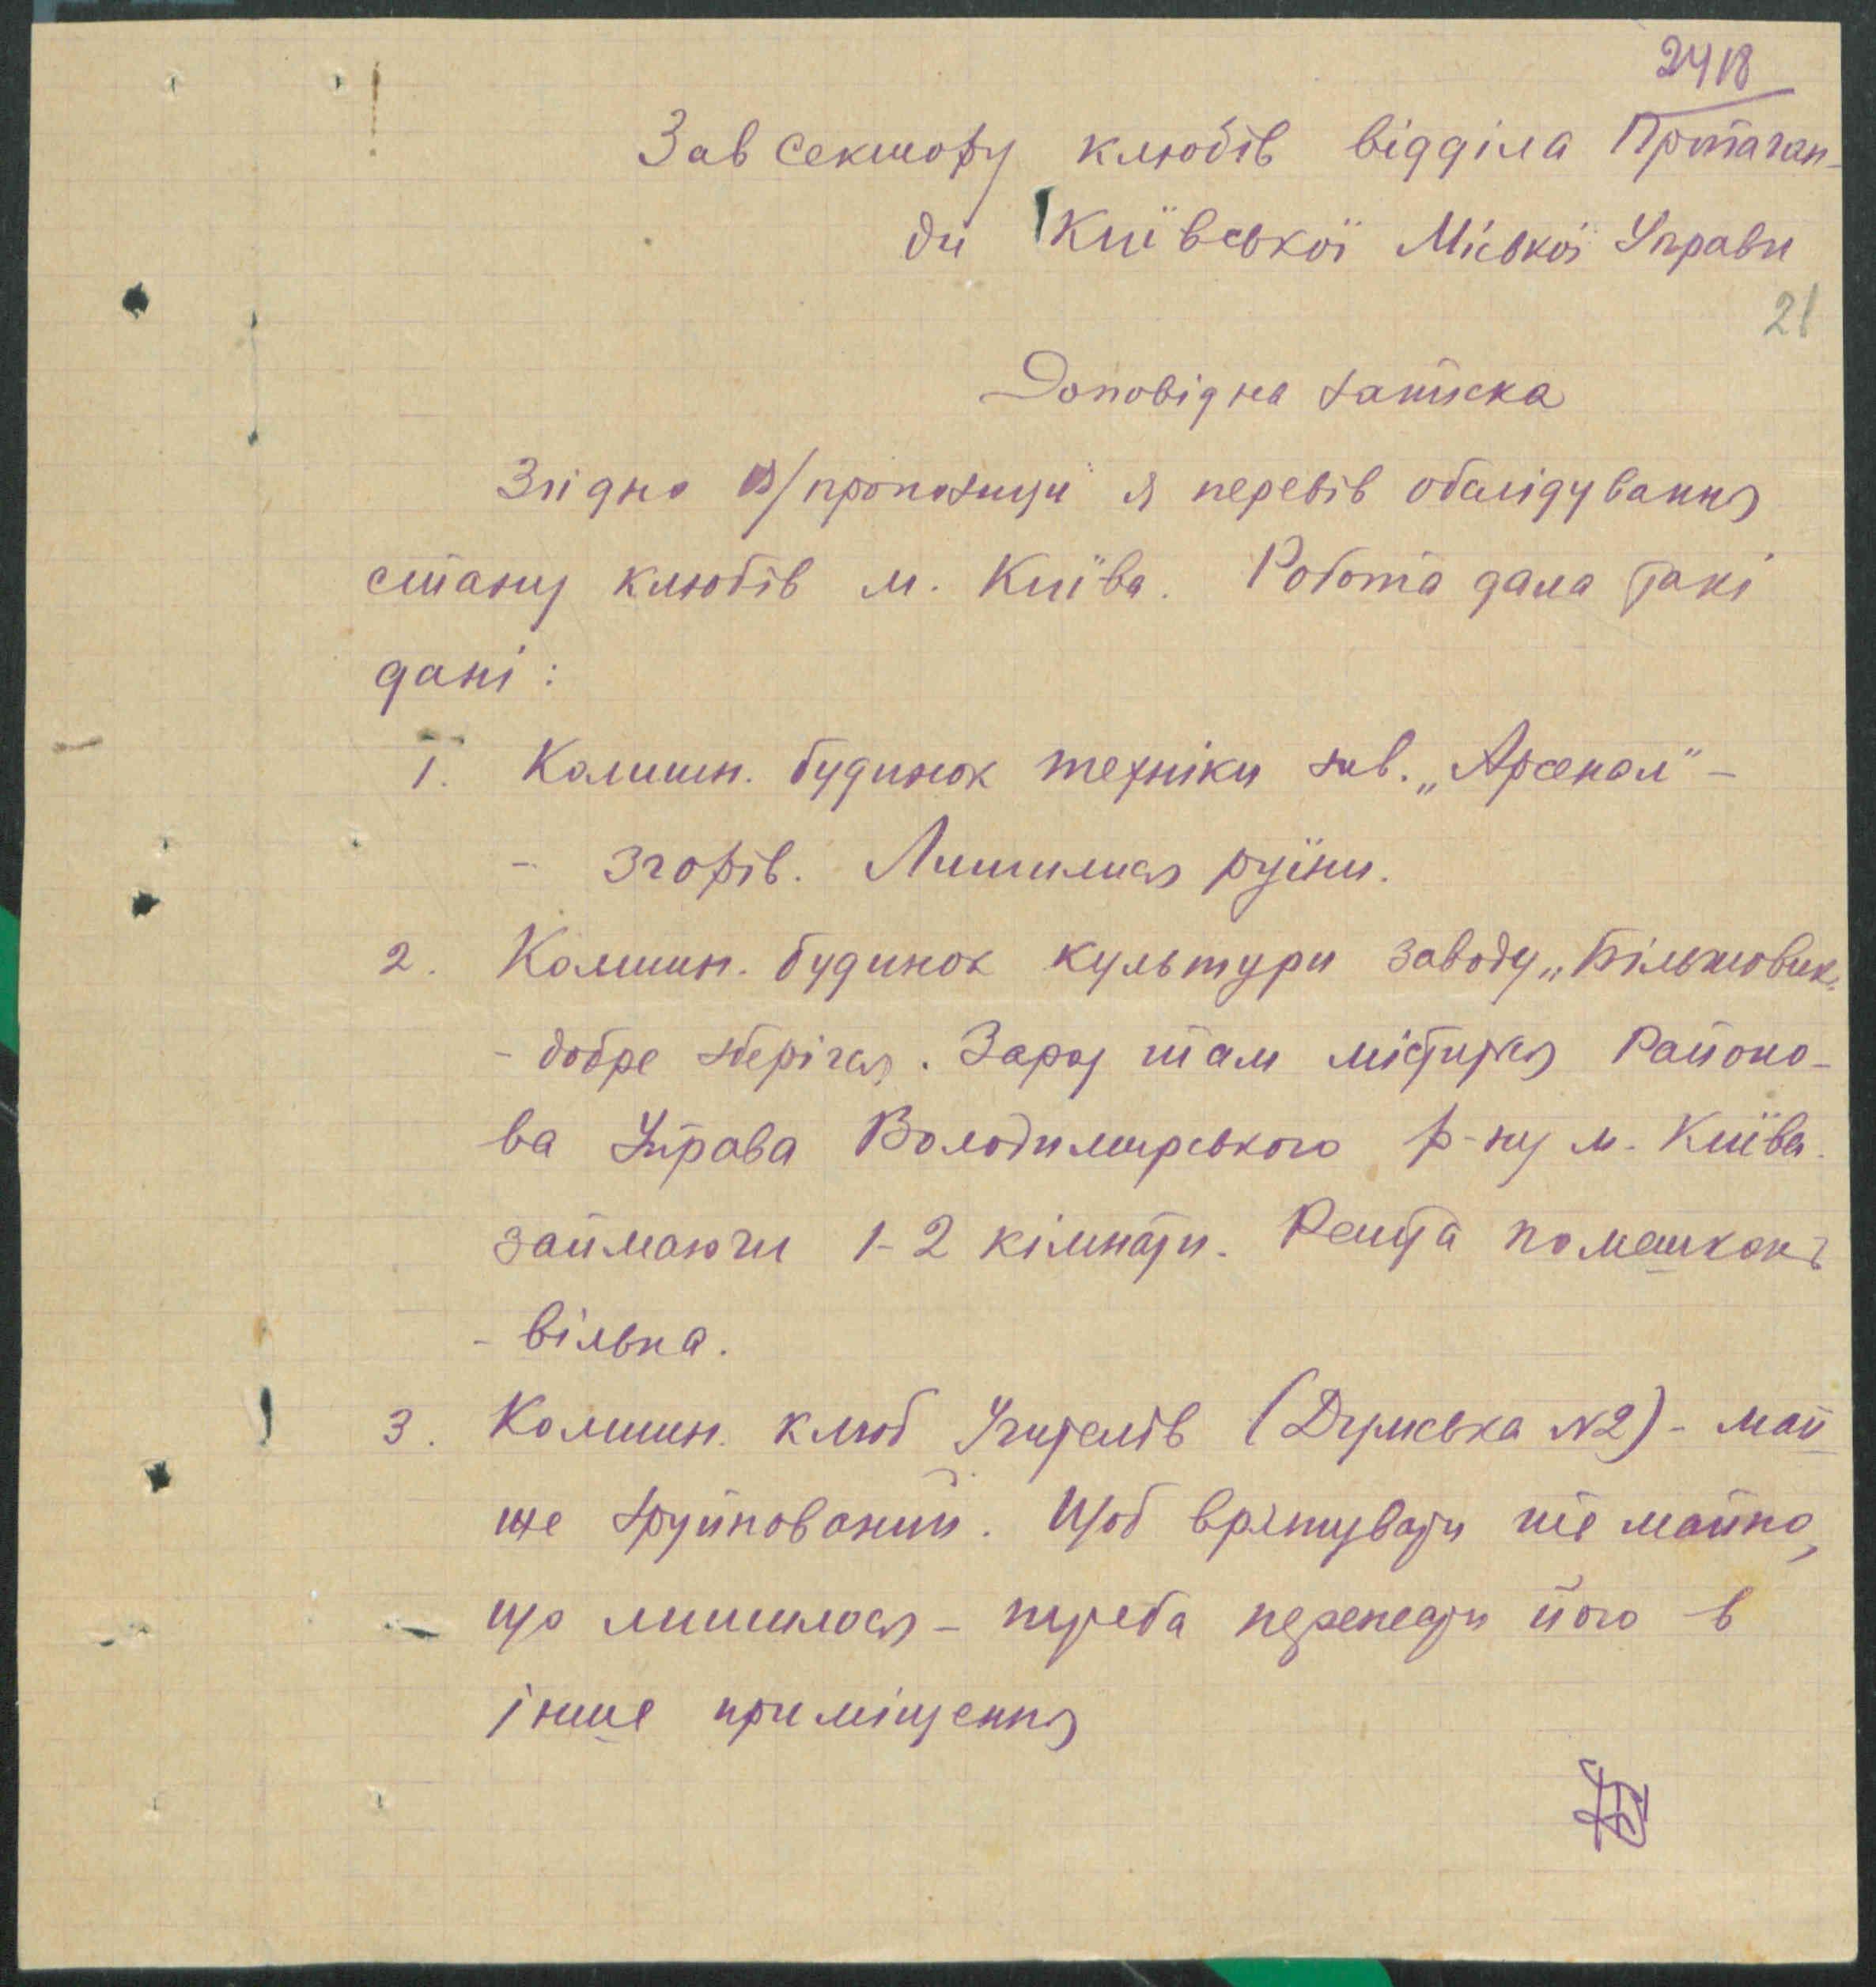 2418
Зав сектору клюбів відділа Пропаган-
ди Київської Міської Управи
21
Доповідна записка
Згідно В/пропозиції я перевів обслідування
стану клюбів м. Київа. Робота дала такі
дані:
1. Колишн. будинок техніки зав. „Арсенал" -
- згорів. Лишилися руїни.
2. Колишн. будинок культури заводу „Більшовик"
- добре зберігся. Зараз там міститься Районо-
ва Управа Володимирського р-ну м. Київа.
займаючи 1-2 кімнати. Решта помешкань
- вільна.
3. Колишн. клюб Учителів (Думська №2) - май
же зруйнований. Щоб врятувати те майно,
що лишилося - треба перенести його в
інше приміщення